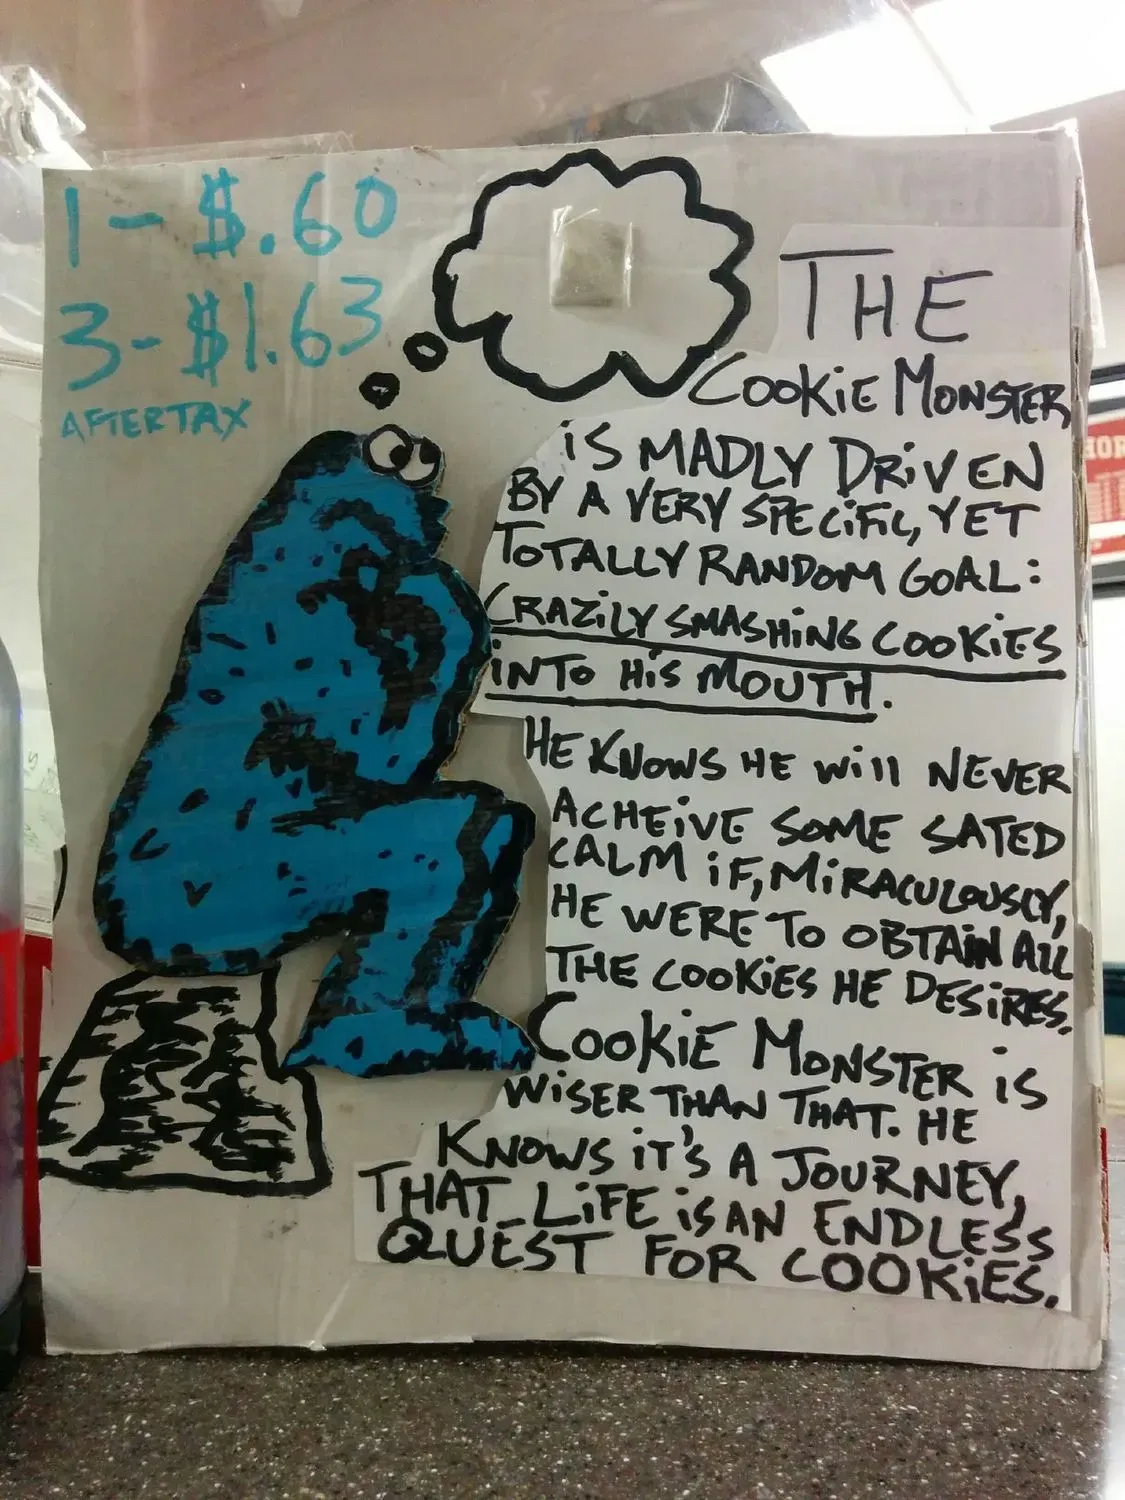 1 - $.60
3 - $1.63
AFTER TAX
THE
COOKIE MONSTER
iS MADLY DRiVEN
BY A VERY SPECiFiC, YET
TOTALLY RANDOM GOAL:
CRAZiLY SMASHiNG COOKiES
iNTO HiS MOUTH.
HE KNOWS HE Will NEVER
ACHEiVE SOME SATED
CALM iF, MiRACULOUSLY,
HE WERE TO OBTAiN All
THE COOKiES HE DESiRES.
COOKiE MONSTER iS
WiSER THAN THAT. HE
KNOWS iT'S A JOURNEY,
THAT LiFE iS AN ENDLESS
QUEST FOR COOKiES.